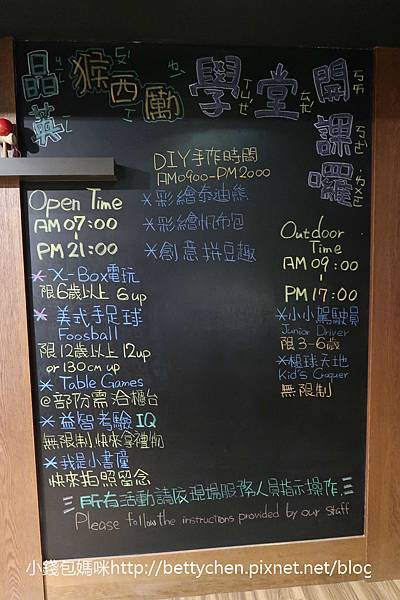 晶英
猴西勵
學堂
開課囉
DIY手作時間
AM0900-PM2000
*彩繪泰迪熊
*彩繪帆布包
*創意拼豆趣
Open Time
AM 07:00
PM 21:00
*X-Box電玩
限6歲以上 6up
*美式手足球
Foosball
限12歲以上 12up
or 130cm up
*Table Games
@部份需洽櫃台
*益智考驗IQ
無限制快來拿禮物
*我是小書蟲
快來拍照留念
Outdoor
Time
AM 09:00
PM 17:00
*小小駕駛員
Junior Driver
限3-6歲
*槌球天地
Kid's Croquer
無限制
所有活動請依現場服務人員指示操作
Please follow the instructions provided by our staff
小錢包媽咪http://bettychen.pixnet.net/blog